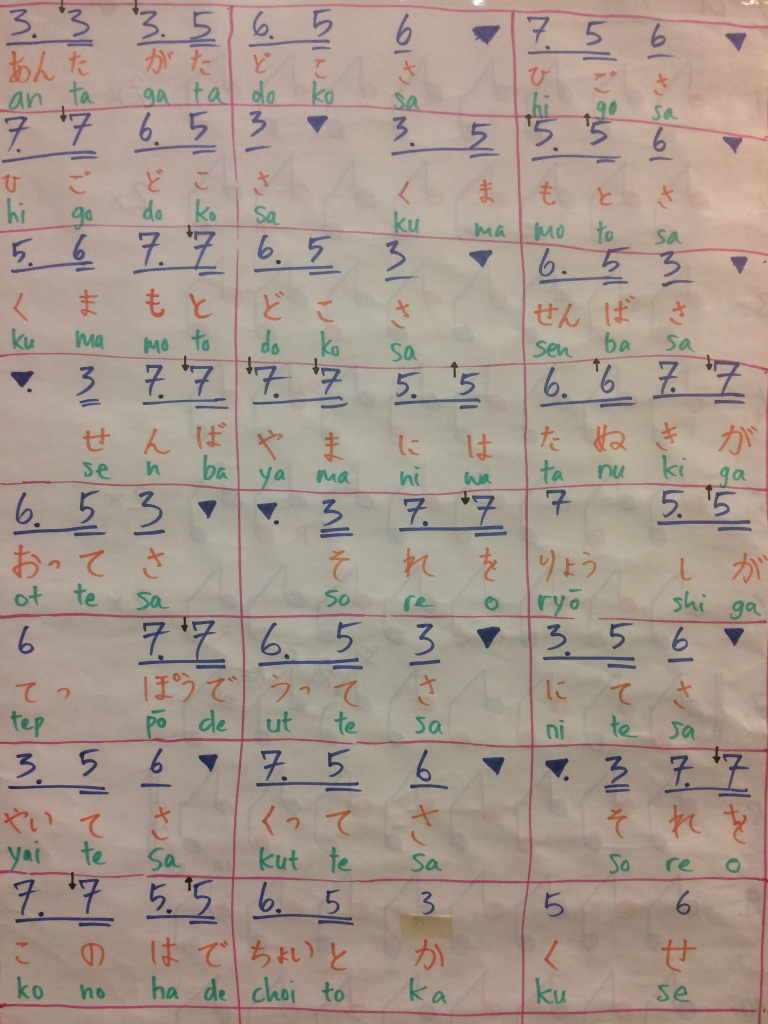 3. 3 3. 5 6. 5 6 ▼ 7. 5 6 ▼
あん た が た ど こ さ ひ ご さ
an ta ga ta do ko sa hi go sa
7. 7 6. 5 3 ▼ 3. 5 5. 5 6 ▼
ひ ご ど こ さ く ま も と さ
hi go do ko sa ku ma mo to sa
5. 6 7. 7 6. 5 3 ▼ 6. 5 3 ▼
く ま も と ど こ さ せん ば さ
ku ma mo to do ko sa sen ba sa
▼. 3 7. 7 7. 7 5. 5 6. 6 7. 7
せ ん ば や ま に は た ぬ き が
se n ba ya ma ni wa ta nu ki ga
6. 5 3 ▼ ▼. 3 7. 7 7 5. 5
おっ て さ そ れ を りょう し が
ot te sa so re o ryō shi ga
6 7. 7 6. 5 3 ▼ 3. 5 6 ▼
てっ ぽう で うっ て さ に て さ
tep pō de ut te sa ni te sa
3. 5 6 ▼ 7. 5 6 ▼ ▼. 3 7. 7
やい て さ くっ て さ そ れ を
yai te sa kut te sa so re o
7. 7 5. 5 6. 5 3 5 6
こ の は で ちょい と か く せ
ko no ha de choi to ka ku se